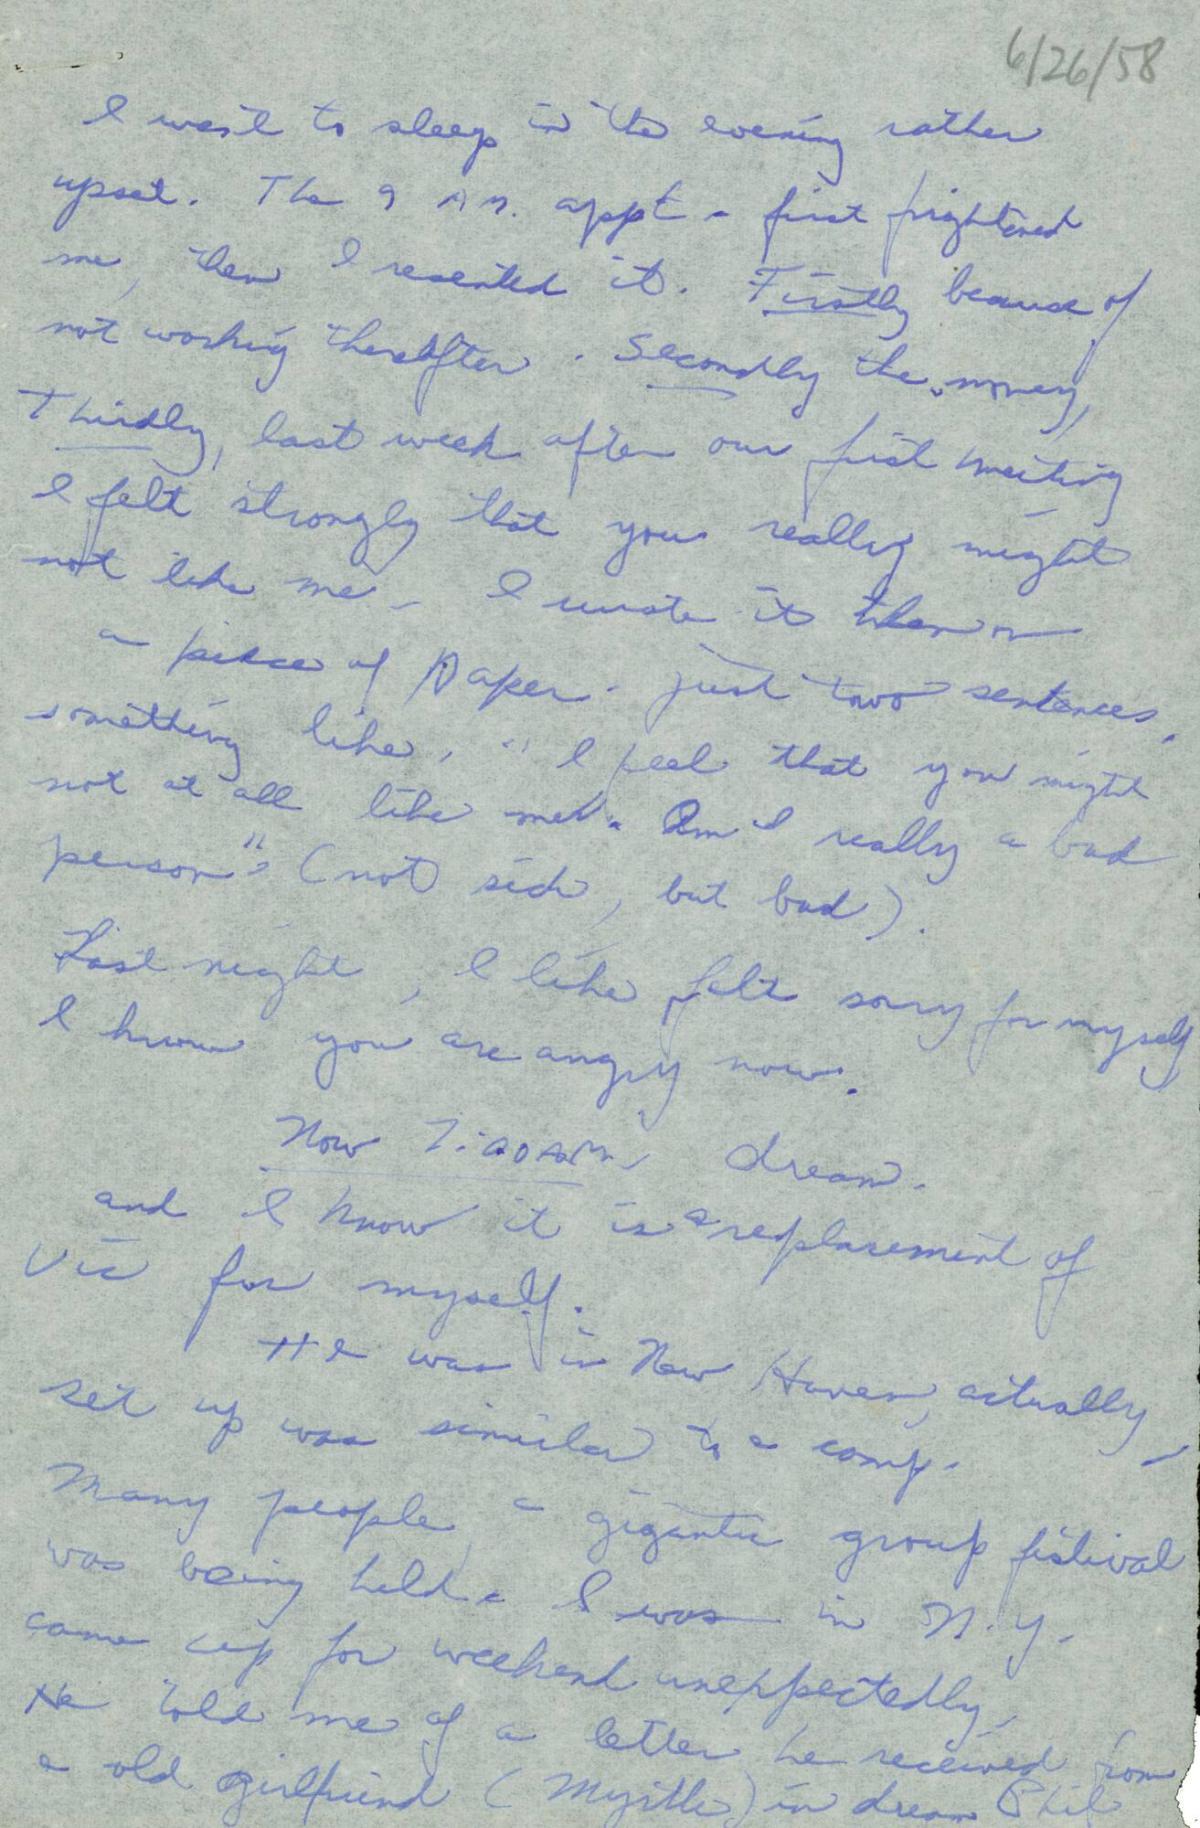 6/26/58
I went to sleep in the evening rather
upset. The 9 A.M. appt - first frightened
me, then I resented it. Firstly because of
not working thereafter. Secondly the money,
Thirdly, last week after our first meeting
I felt strongly that you really might
not like me - I wrote it then on
a piece of paper - just two sentences,
something like, "I feel that you might
not at all like me. Am I really a bad
person"? (not sick, but bad).
Last night, I like felt sorry for myself
I know you are angry now.
Now dream.
and I know it is a replacement of
Vic for myself.
He was in New Haven, actually
set up was similar to a camp.
Many people, a gigantic group festival
was being held. I was in N.Y.
came up for weekend uneppectedly,
He told me of a letter he received from
a old girlfriend (Myrtle) in dream Phil